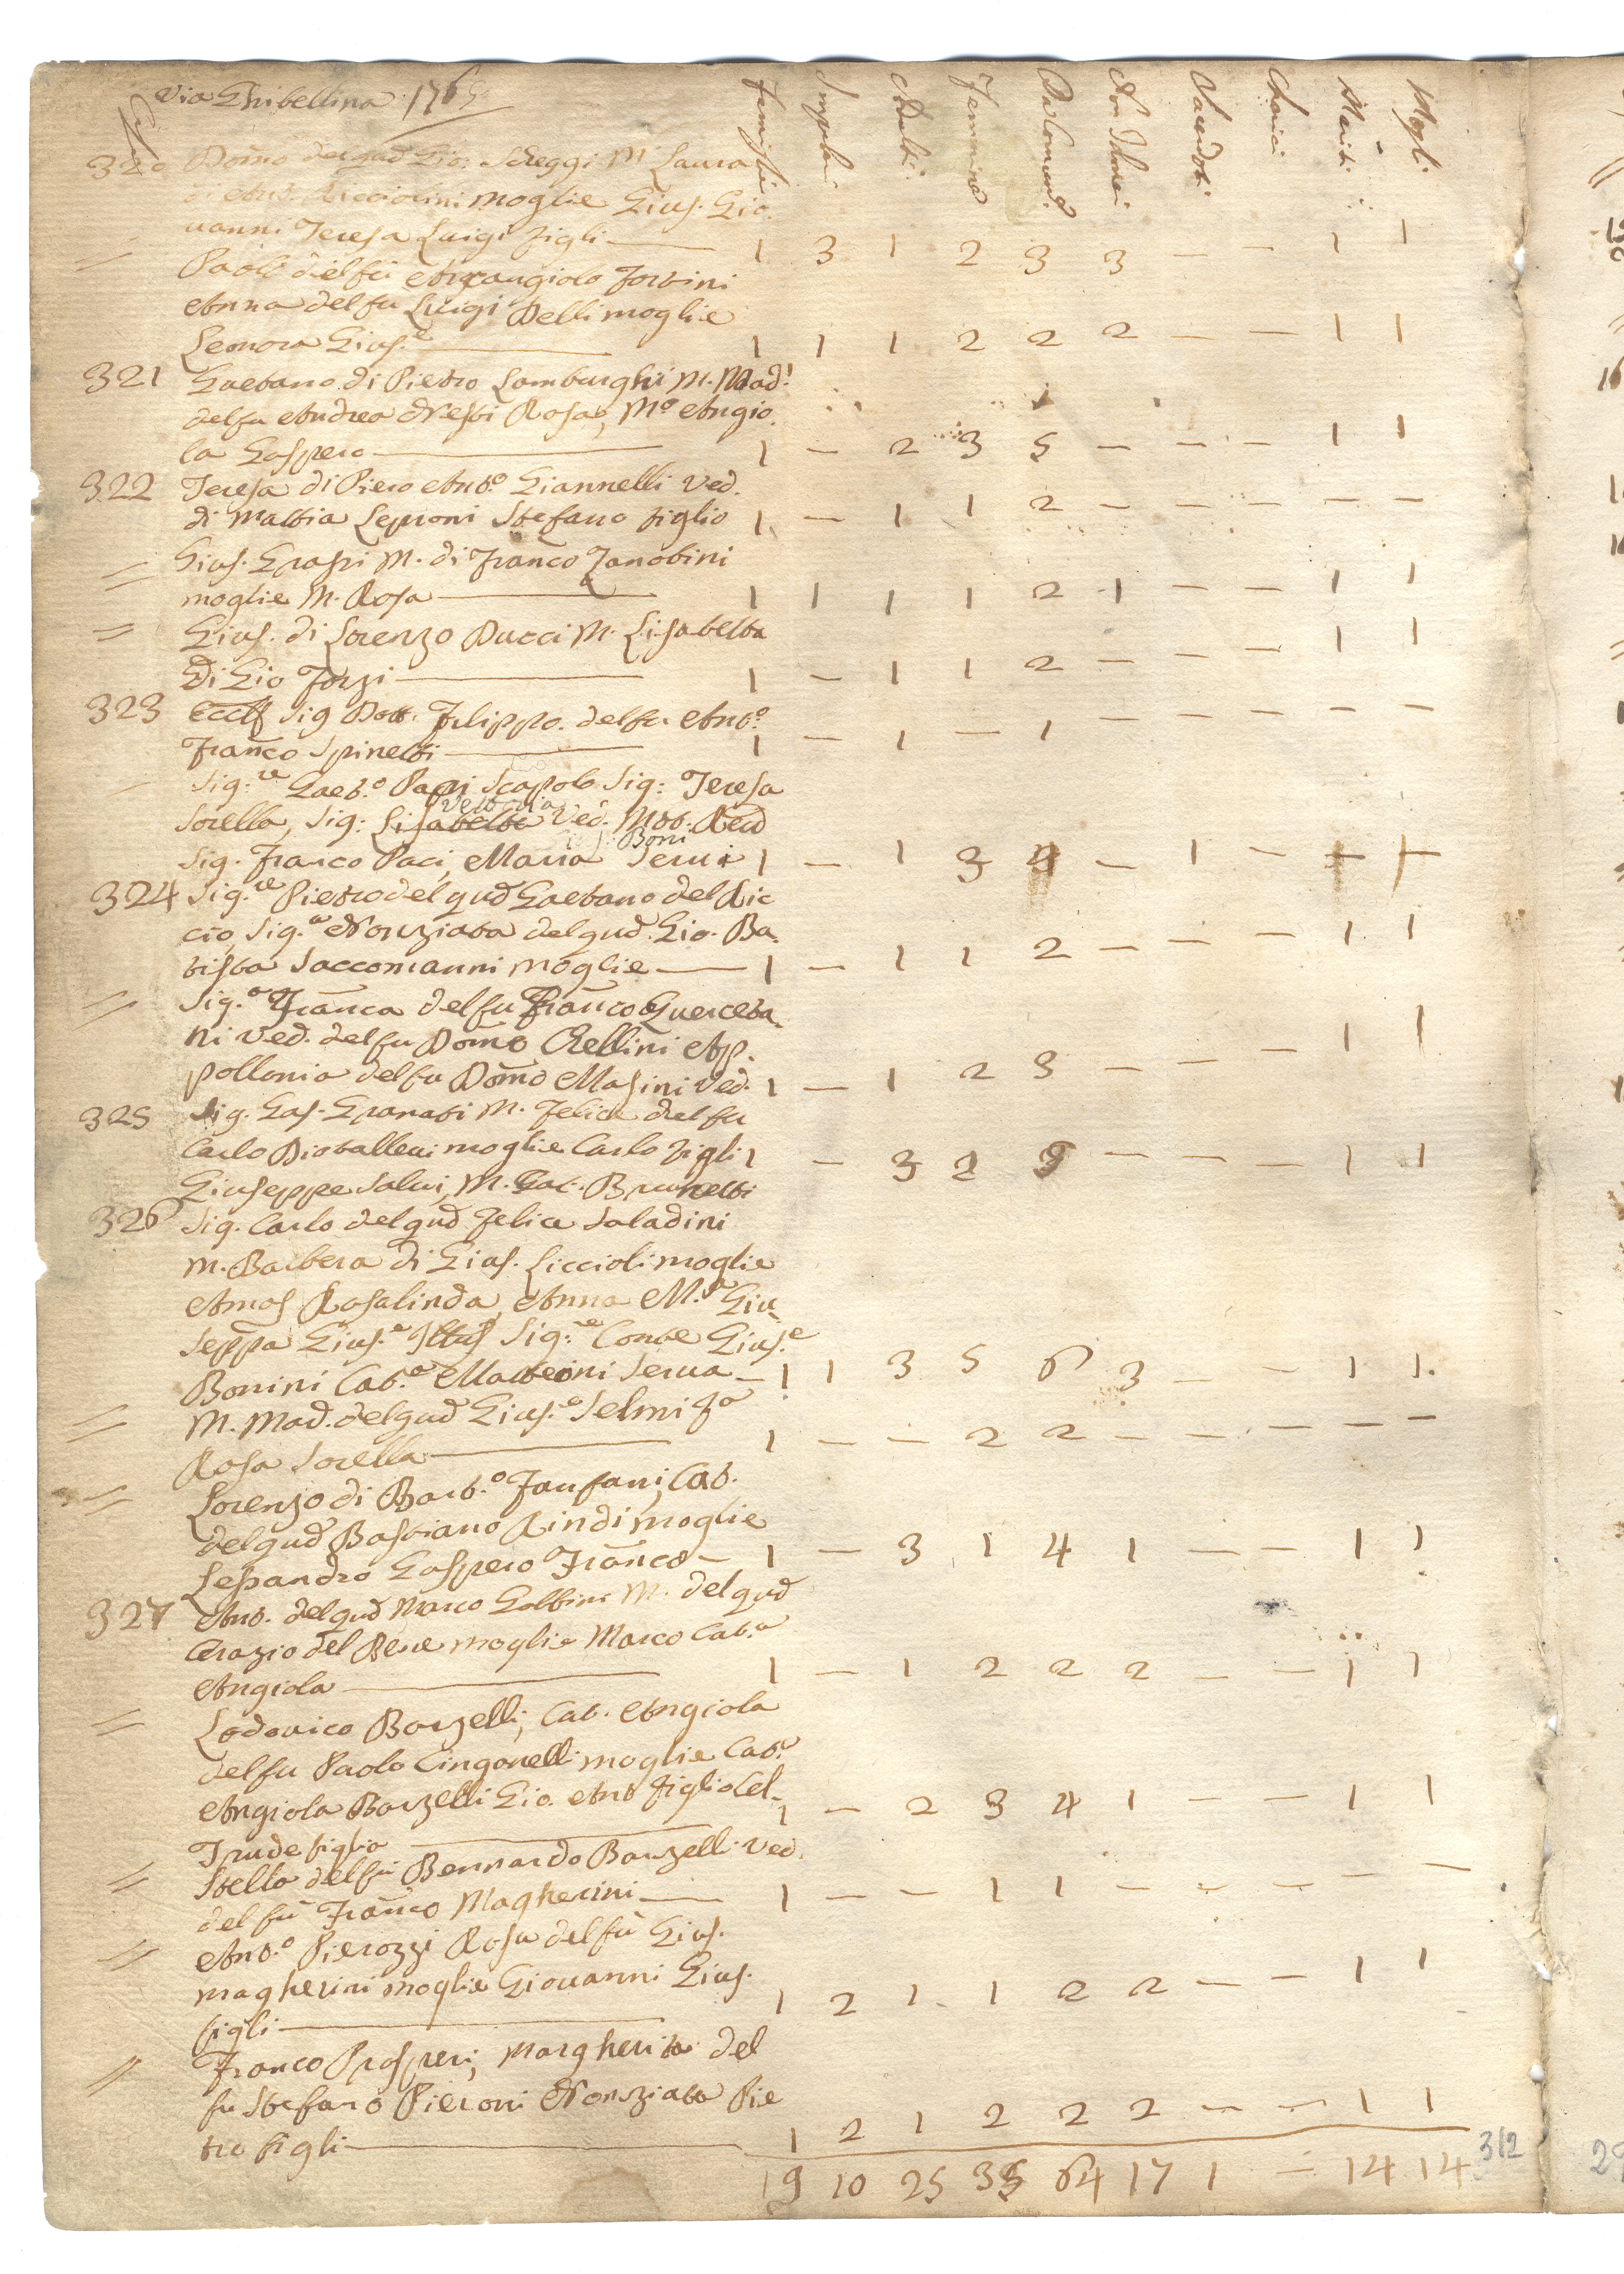 Via Ghibellina 176
Case Famiglie Impuberi Adulti Femmine Da Comunᵉ Non Idonei Sacerdoti Cherici Mariti Mogli
320 Domᵒ del qud Gio: Scheggi M. Laura
di Antᵒ Ricciolini moglie Gius. Gio.
= vanni Teresa Luigi figli — 1 3 1 2 3 3 — — 1 1
Paolo del fu Arcangiolo Fortini
Anna del fu Luigi Delli moglie
Leonora Gius.ᵉ — 1 1 1 2 2 2 — — 1 1
321 Gaetano di Pietro Lamburghi M. Mad.ᵃ
del fu Andrea Nesti Rosa, Mᵒ Angio.
la Gaspero — 1 — 2 3 5 — — — 1 1
322 Teresa di Piero Antᵒ. Giannelli Ved.
di Mattia Leproni Stefano figlio 1 — 1 1 2 — — — — —
= Gius. Graspi M. di Franco Zanobini
moglie M. Rosa — 1 1 1 1 2 1 — — 1 1
= Gius. di Lorenzo Ducci M. Lisabetta
di Gio Forzi — 1 — 1 1 2 — — — 1 1
323 Eccᵐᵒ Sig Dott. Filippo. del fu Antᵒ.
Franco Spinetti — 1 — 1 — 1 — — — — —
— Sig:ʳᵉ Gaet.ᵒ Paci Scapolo Sig: Teresa
Vettoria
Sorella, Sig: Lisabetta Ved. Mto. Revd
Boni
Sig. Franco Paci, Maria Serva 1 — 1 3 4 — 1 — + +
324 Sig.ʳᵉ Pietro del qud Gaetano del Ric
cio, Sig.ᵃ Nonziata del qud. Gio. Ba.
tista Saccomanni moglie — 1 — 1 1 2 — — — 1 1
= Sig.ᵃ Franca del fu Franco Querceta.
ni ved. del fu Domᵒ Chellini Ap.
pollonia del fu Domᵒ Masini ved. 1 — 1 2 3 — — — 1 1
325 Sig. Gas. Granati M. Felice del fu
Carlo Diotallevi moglie Carlo figli 1 — 3 2 5 — — — 1 1
Giuseppe Salvi, M. Gat. Brunetti
326 Sig. Carlo del qud Felice Saladini
M. Barbera di Gius. Liccioli moglie
Amos Rosalinda, Anna M.ᵃ Giu
seppa Gius.ᵉ Illus Sig:ʳᵉ Conte Gius.ᵉ
Bonini Cat.ᵃ Matteoni Serva — 1 1 3 5 6 3 — — 1 1.
= M. Mad. del qud Gius.ᵉ Selmi fᵃ
Rosa Sorella — 1 — — 2 2 — — — — —
= Lorenzo di Bart.ᵒ Fanfani, Cat.
del qud Bastiano Rindi moglie
Lesandro Gaspero Franco — 1 — 3 1 4 1 — — 1 1
327 Ant. del qud Marco Galbini M. del qud
Orazio del Bene moglie Marco Cat.ᵃ
Angiola — 1 — 1 2 2 2 — — 1 1
= Lodovico Bonzelli, Cat. Angiola
del fu Paolo Cinganelli moglie Cat.ᵃ
Angiola Bonzelli Gio. Ant figlio Cel- 1 — 2 3 4 1 — — 1 1
Trude figlia —
= Stella del fu Bernardo Bonzelli Ved.
del fu Franco Magherini — 1 — — 1 1 — — — — —
= Antᵒ. Pierozzi Rosa del fu Gius.
magherini moglie Giovanni Gius.
figli — 1 2 1 1 2 2 — — 1 1
= Franco Prosperi, Margherita del
fu Stefano Pieroni Nonziata Pie
tro figli — 1 2 1 2 2 2 — — 1 1
19 10 25 35 64 17 1 — 14 14 312